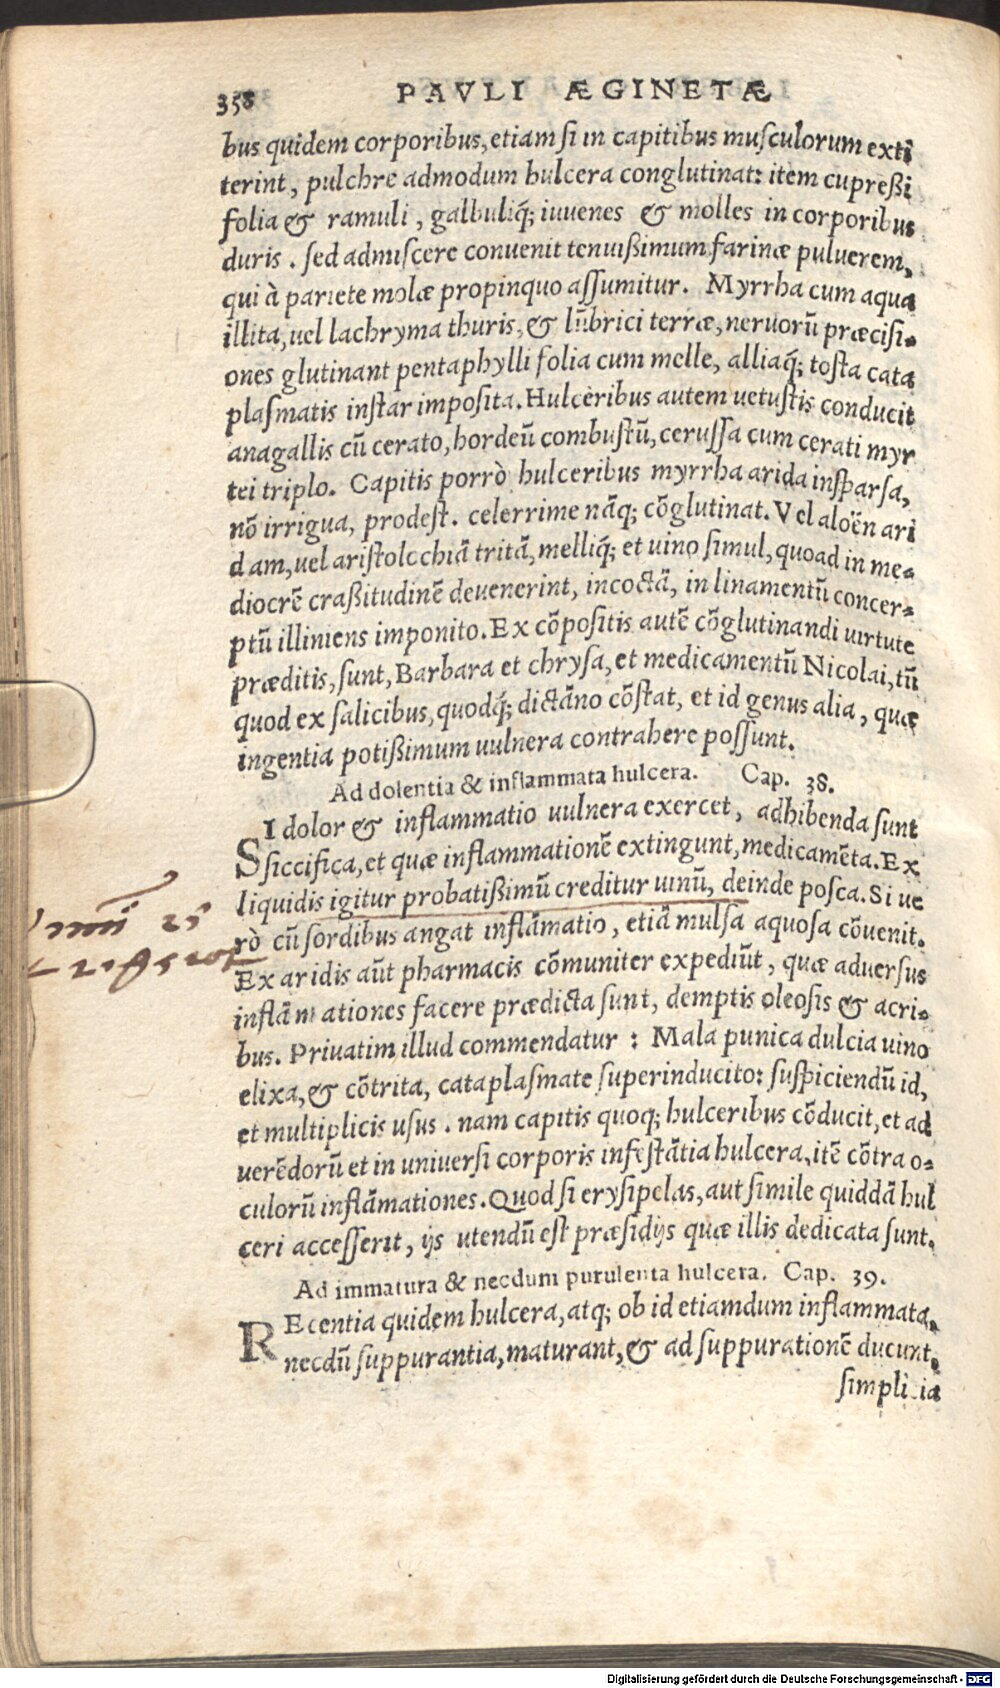 358 PAVLI ÆGINETÆ
bus quidem corporibus, etiam si in capitibus musculorum exti
terint, pulchre admodum hulcera conglutinat: item cupreßi
folia & ramuli, galbuliq́; iuuenes & molles in corporibus
duris. sed admiscere conuenit tenuißimum farinæ puluerem,
qui à pariete molæ propinquo assumitur. Myrrha cum aqua
illita, uel lachryma thuris, & lũbrici terræ, neruorũ præcisi-
ones glutinant pentaphylli folia cum melle, alliaq́; tosta cata
plasmatis instar imposita. Hulceribus autem uetustis conducit
anagallis cũ cerato, hordeũ combustũ, cerussa cum cerati myr
tei triplo. Capitis porrò hulceribus myrrha arida insparsa,
nõ irrigua, prodest. celerrime nãq; cõglutinat. Vel aloën ari
dam, uel aristolochiã tritã, melliq́; et uino simul, quoad in me-
diocrẽ craßitudinẽ deuenerint, incoctã, in linamentũ concer-
ptũ illiniens imponito. Ex cõpositis autẽ cõglutinandi uirtute
præditis, sunt, Barbara et chrysa, et medicamentũ Nicolai, tũ
quod ex salicibus, quodq́; dictãno cõstat, et id genus alia, quæ
ingentia potißimum uulnera contrahere possunt.
Ad dolentia & inflammata hulcera. Cap. 38.
SI dolor & inflammatio uulnera exercet, adhibenda sunt
siccifica, et quæ inflammationẽ extingunt, medicamẽta. Ex
liquidis igitur probatißimũ creditur uinũ, deinde posca. Si ue
rò cũ sordibus angat inflãmatio, etiã mulsa aquosa cõuenit.
Ex aridis aũt pharmacis cõmuniter expediũt, quæ aduersus
inflãmationes facere prædicta sunt, demptis oleosis & acri-
bus. Priuatim illud commendatur: Mala punica dulcia uino
elixa, & cõtrita, cataplasmate superinducito: suspiciendũ id,
et multiplicis usus. nam capitis quoq; hulceribus cõducit, et ad
uerẽdorũ et in uniuersi corporis infestãtia hulcera, itẽ cõtra o-
culorũ inflãmationes. Quod si erysipelas, aut simile quiddã hul
ceri accesserit, ijs utendũ est præsidijs quæ illis dedicata sunt.
Ad immatura & necdum purulenta hulcera. Cap. 39.
REcentia quidem hulcera, atq; ob id etiamdum inflammata,
necdũ suppurantia, maturant, & ad suppurationẽ ducunt,
simplicia
Digitalisierung gefördert durch die Deutsche Forschungsgemeinschaft - DFG